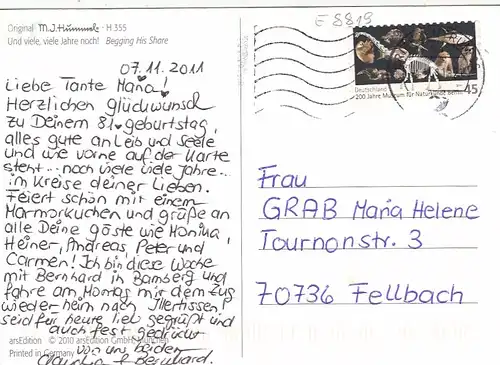 Original M.J. Hummel · H 355
Und viele, viele Jahre noch! Begging His Share
07.11.2011
Liebe Tante Maria!
Herzlichen Glückwunsch
zu Deinem 81. Geburtstag,
alles gute an Leib und Seele
und wie vorne auf der Karte
steht... noch viele viele Jahre...
im Kreise deiner Lieben.
Feiert schön mit einem
Marmorkuchen und grüße an
alle Deine Gäste wie Monina,
Heiner, Andreas, Peter und
Carmen! Ich bin diese Woche
mit Bernhard in Bamberg und
fahre am Montag mit dem Zug
wieder heim nach Illertissen!
Seid für heute lieb gegrüßt und
auch fest gedrückt
von uns beiden
Claudia + Bernhard.
arsEdition © 2010 arsEdition GmbH, München
Printed in Germany
E 8819
Deutschland 45
200 Jahre Museum für Naturkunde Berlin
Frau
GRAB Maria Helene
Tournonstr. 3
70736 Fellbach